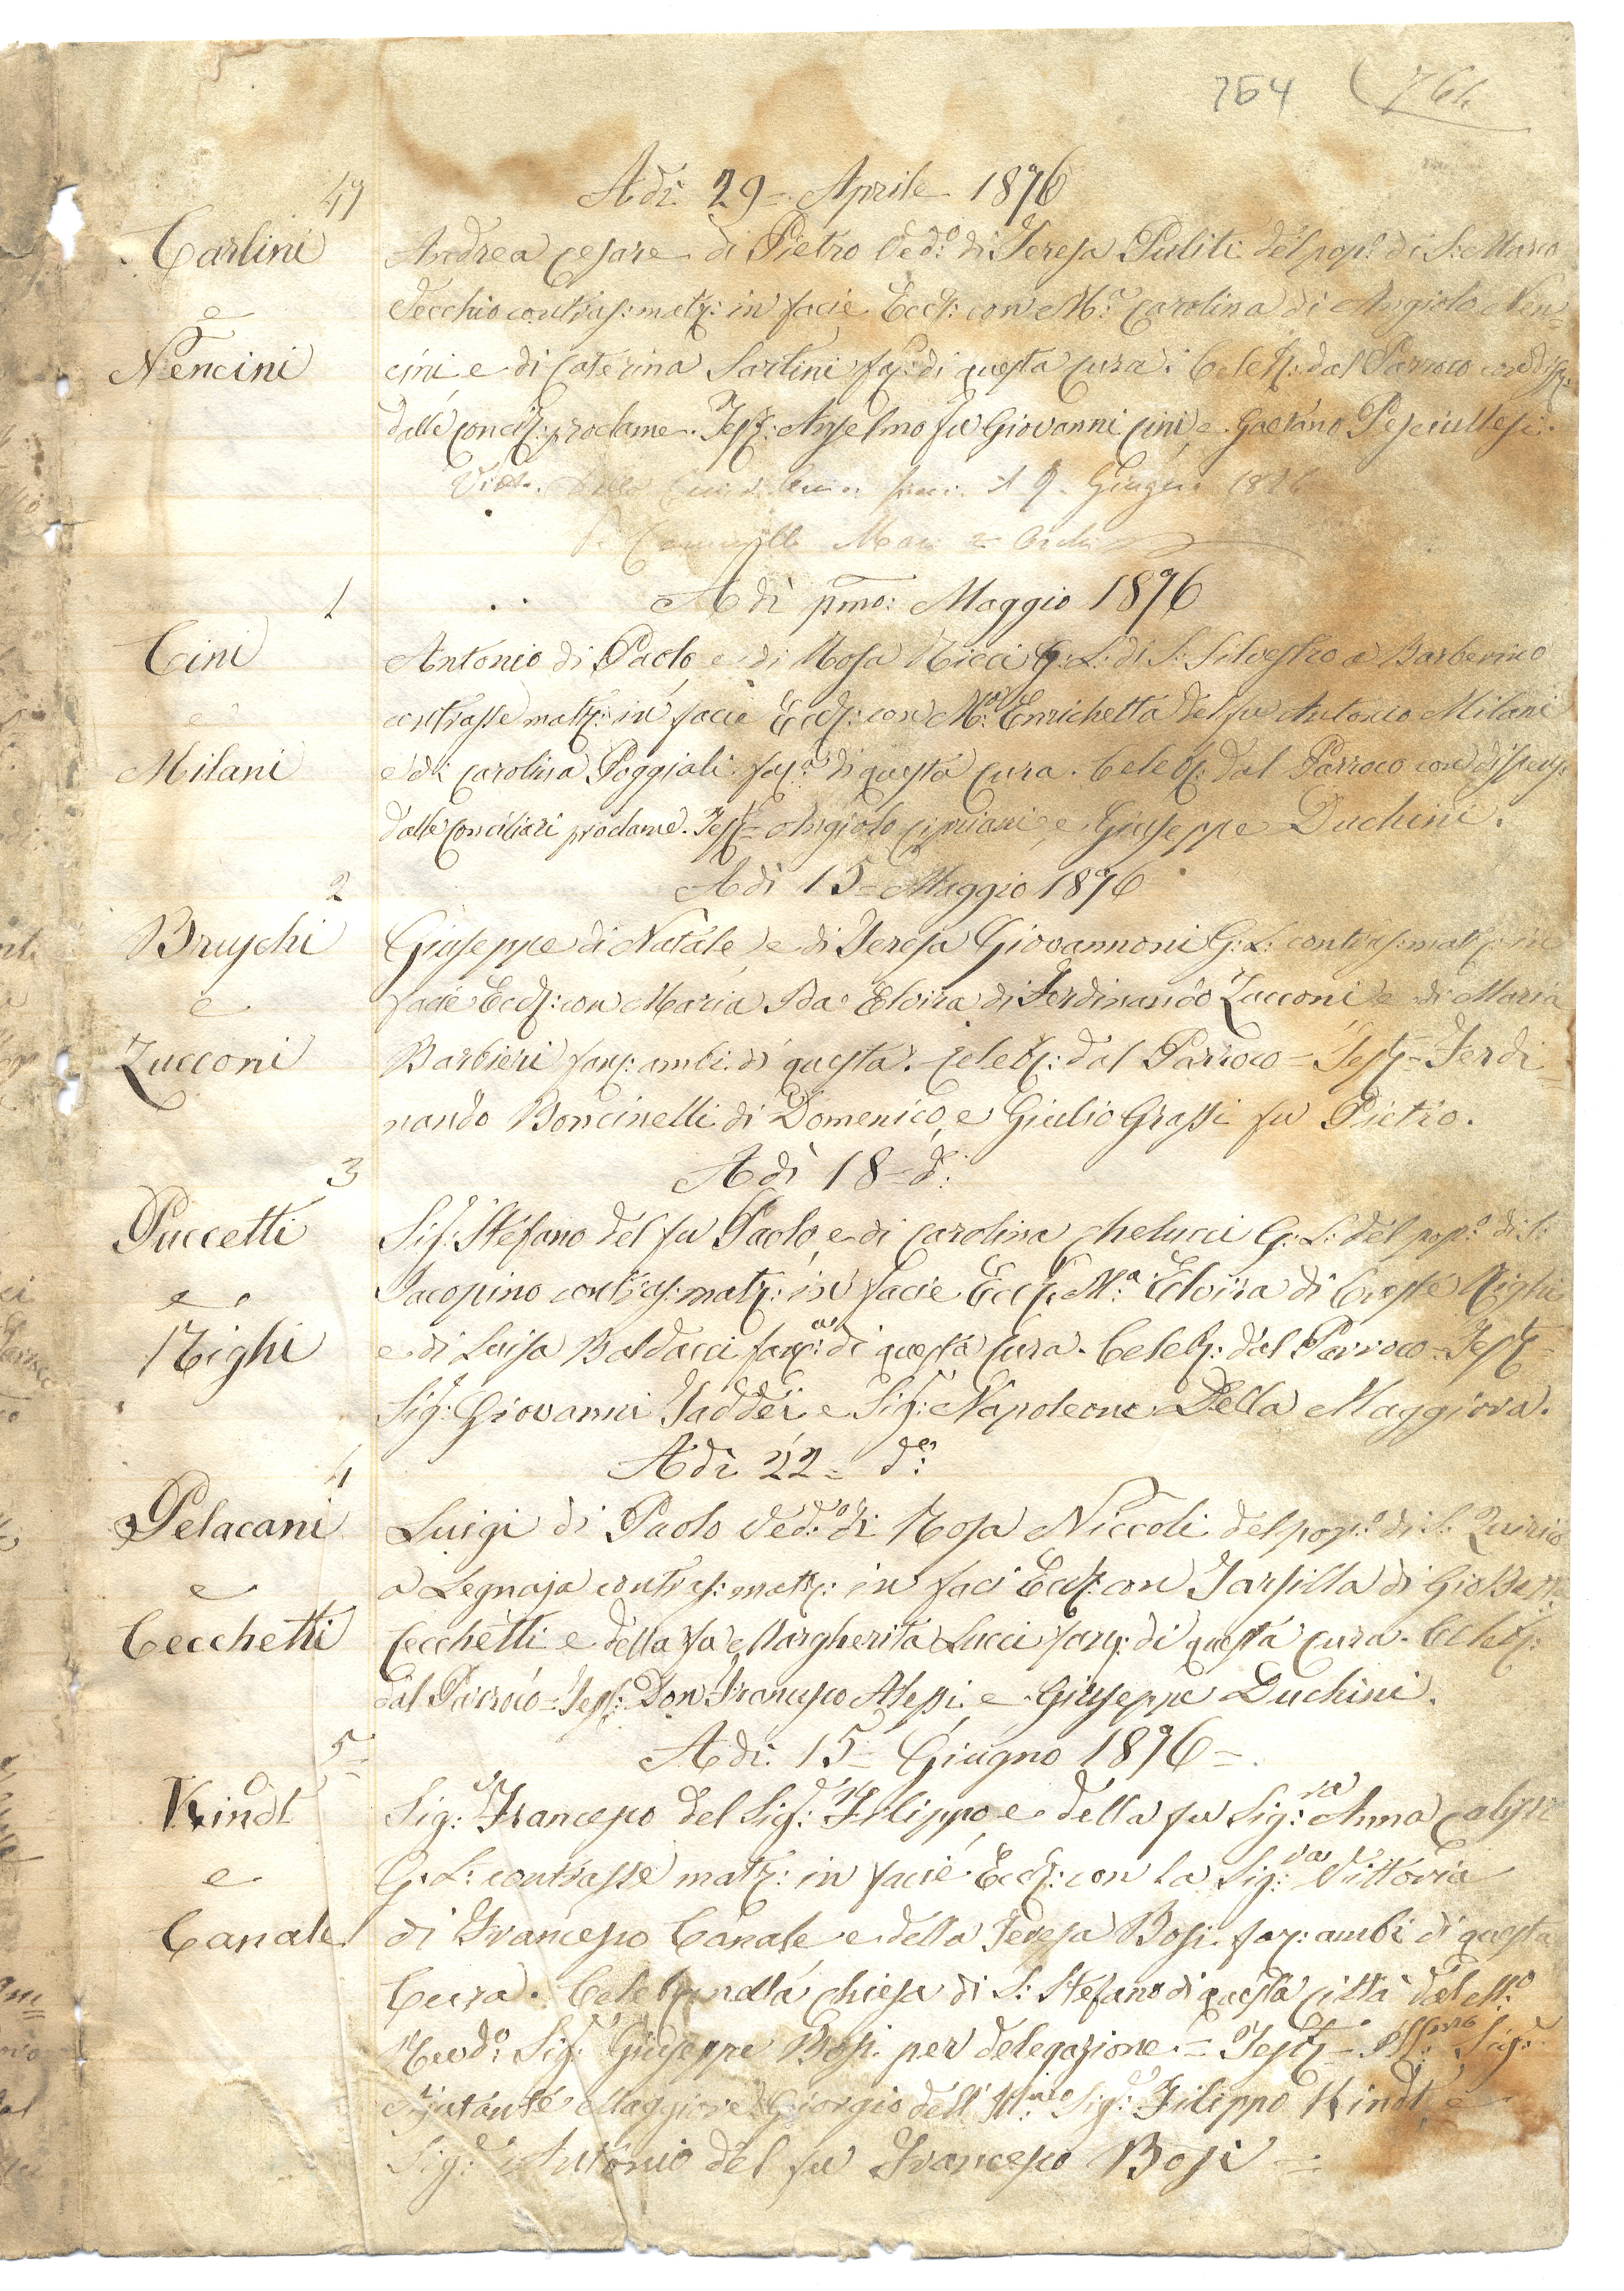 764 764
47
Adì 29 = Aprile 1876
Carlini
e
Nencini
Andrea Cesare di Pietro Ved:º di Teresa Puliti del pop:º di S: Marco
Vecchio contras: matr: in facie Eccl: con M:ª Carolina di Angiolo Nen=
cini e di Caterina Sartini fan: di questa Cura. Celeb: dal Parroco con disp:
dalle Concil: proclame. Test: Anselmo fu Giovanni Cini, e Gaetano Pesciullesi.
9 Giugno
1
Adì pmo: Maggio 1876
Cini
e
Milani
Antonio di Paolo, e di Rosa Ricci G: L: di S: Silvestro a Barberino
contrasse matr: in facie Eccl: con M:ª Enrichetta del fu Antonio Milani
e di Carolina Poggiali fan:ª di questa Cura. Celeb: dal Parroco con dispens:
dalle Conciliari proclame. Test= Angiolo Cipriani, e Giuseppe Duchini.
2
Adì 15= Maggio 1876
Bruschi
e
Zucconi
Giuseppe di Natale, e di Teresa Giovannoni G: L: contras: matr: in
facie Eccl: con Maria Ida Elvira di Ferdinando Zucconi e di Maria
Barbieri fan: ambi di questa. Celeb: dal Parroco = Test= Ferdi=
nando Boncinelli di Domenico, e Giulio Grassi fu Pietro.
3
Adì 18= dº:
Puccetti
e
Righi
Sig: Stefano del fu Paolo, e di Carolina Chelucci G: L: del pop:º di S:
Jacopino contras: matr: in facie Eccl: M:ª Elvira di Oreste Righi
e di Luisa Baldacci fan:ª di questa Cura. Celeb: dal Parroco = Test=
Sig: Giovanni Taddei e Sig: Napoleone Della Maggiora.
4
Adì 22= dº:
Pelacani
e
Cecchetti
Luigi di Paolo Ved:º di Rosa Niccoli del pop:º di S: Quirico
a Legnaja contras: matr: in faci Eccl: con Tarsilla di Gio Batt:
Cecchetti e della fu Margherita Lucci fan: di questa Cura. Celeb:
dal Parroco = Test: Don Francesco Alessi e Giuseppe Duchini.
5=
Adì: 15= Giugno 1876=
Kindt
e
Canale
Sig:r Francesco del Sig:r Filippo, e della fu Sig:ra Anna
G: L: contrasse matr: in facie Eccl: con la Sig:ra Vittoria
di Francesco Canale e della Teresa Bosi fan: ambi di questa
Cura. Celeb: nella Chiesa di S: Stefano di questa Città dal M:º
Revdº: Sig:r Giuseppe Bosi per delegazione = Test= Ill:mo Sig:r
Ajutante Maggiore Giorgio dell' Ill:mo Sig:r Filippo Kindt, e
Sig:r Antonio del fu Francesco Bosi =